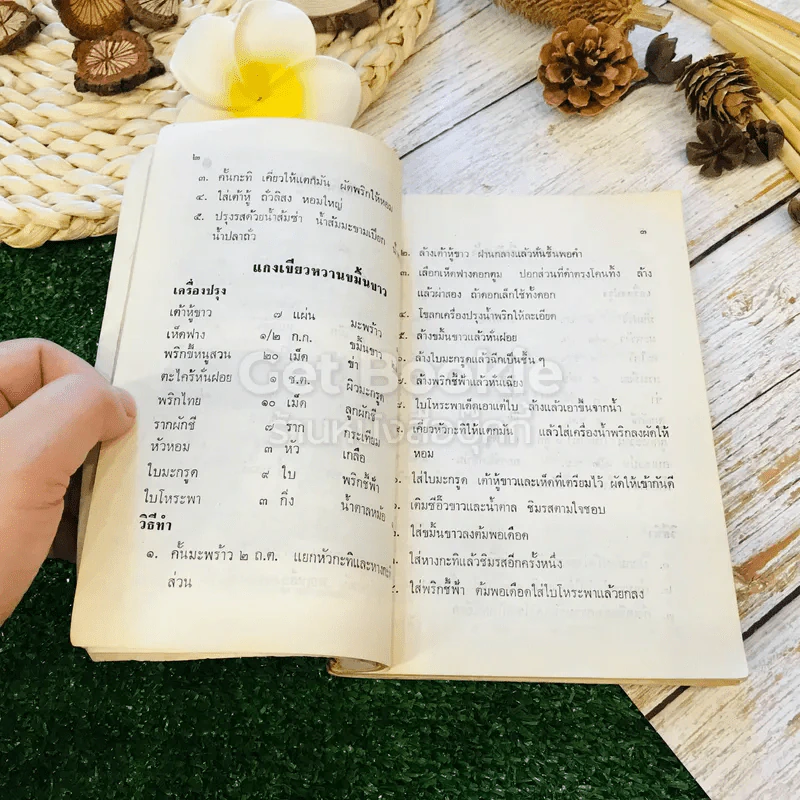 ๒
๓. คั้นกะทิ เคี่ยวให้แตกมัน ผัดพริกให้หอม
๔. ใส่เต้าหู้ ถั่วลิสง หอมใหญ่
๕. ปรุงรสด้วยน้ำส้มซ่า น้ำส้มมะขามเปียก
น้ำปลาถั่ว
แกงเขียวหวานขมิ้นขาว
เครื่องปรุง
เต้าหู้ขาว ๗ แผ่น มะพร้าว
เห็ดฟาง ๑/๒ ก.ก. ขมิ้นขาว
พริกขี้หนูสวน ๒๐ เม็ด ข่า
ตะไคร้หั่นฝอย ๑ ช.ต. ผิวมะกรูด
พริกไทย ๑๐ เม็ด ลูกผักชี
รากผักชี ๗ ราก กระเทียม
หัวหอม ๓ หัว เกลือ
ใบมะกรูด ๙ ใบ พริกชี้ฟ้า
ใบโหระพา ๓ กิ่ง น้ำตาลหม้อ
วิธีทำ
๑. คั้นมะพร้าว ๒ ถ.ต. แยกหัวกะทิและหางกะทิ
ส่วน
๓
๒. ล้างเต้าหู้ขาว ฝานกลางแล้วหั่นชิ้นพอคำ
๓. เลือกเห็ดฟางดอกตูม ปอกส่วนที่ดำตรงโคนทิ้ง ล้าง
แล้วผ่าสอง ถ้าดอกเล็กใช้ทั้งดอก
โขลกเครื่องปรุงน้ำพริกให้ละเอียด
ล้างขมิ้นขาวแล้วหั่นฝอย
ล้างใบมะกรูดแล้วฉีกเป็นชิ้น ๆ
ล้างพริกชี้ฟ้าแล้วหั่นเฉียง
ใบโหระพาเด็ดเอาแต่ใบ ล้างแล้วเอาขึ้นจากน้ำ
เคี่ยวหัวกะทิให้แตกมัน แล้วใส่เครื่องน้ำพริกลงผัดให้
หอม
ใส่ใบมะกรูด เต้าหู้ขาวและเห็ดที่เตรียมไว้ ผัดให้เข้ากันดี
เติมซีอิ๊วขาวและน้ำตาล ชิมรสตามใจชอบ
ใส่ขมิ้นขาวลงต้มพอเดือด
ใส่หางกะทิแล้วชิมรสอีกครั้งหนึ่ง
ใส่พริกชี้ฟ้า ต้มพอเดือดใส่ใบโหระพาแล้วยกลง
Get Bookie
ร้านหนังสือคุกกี้